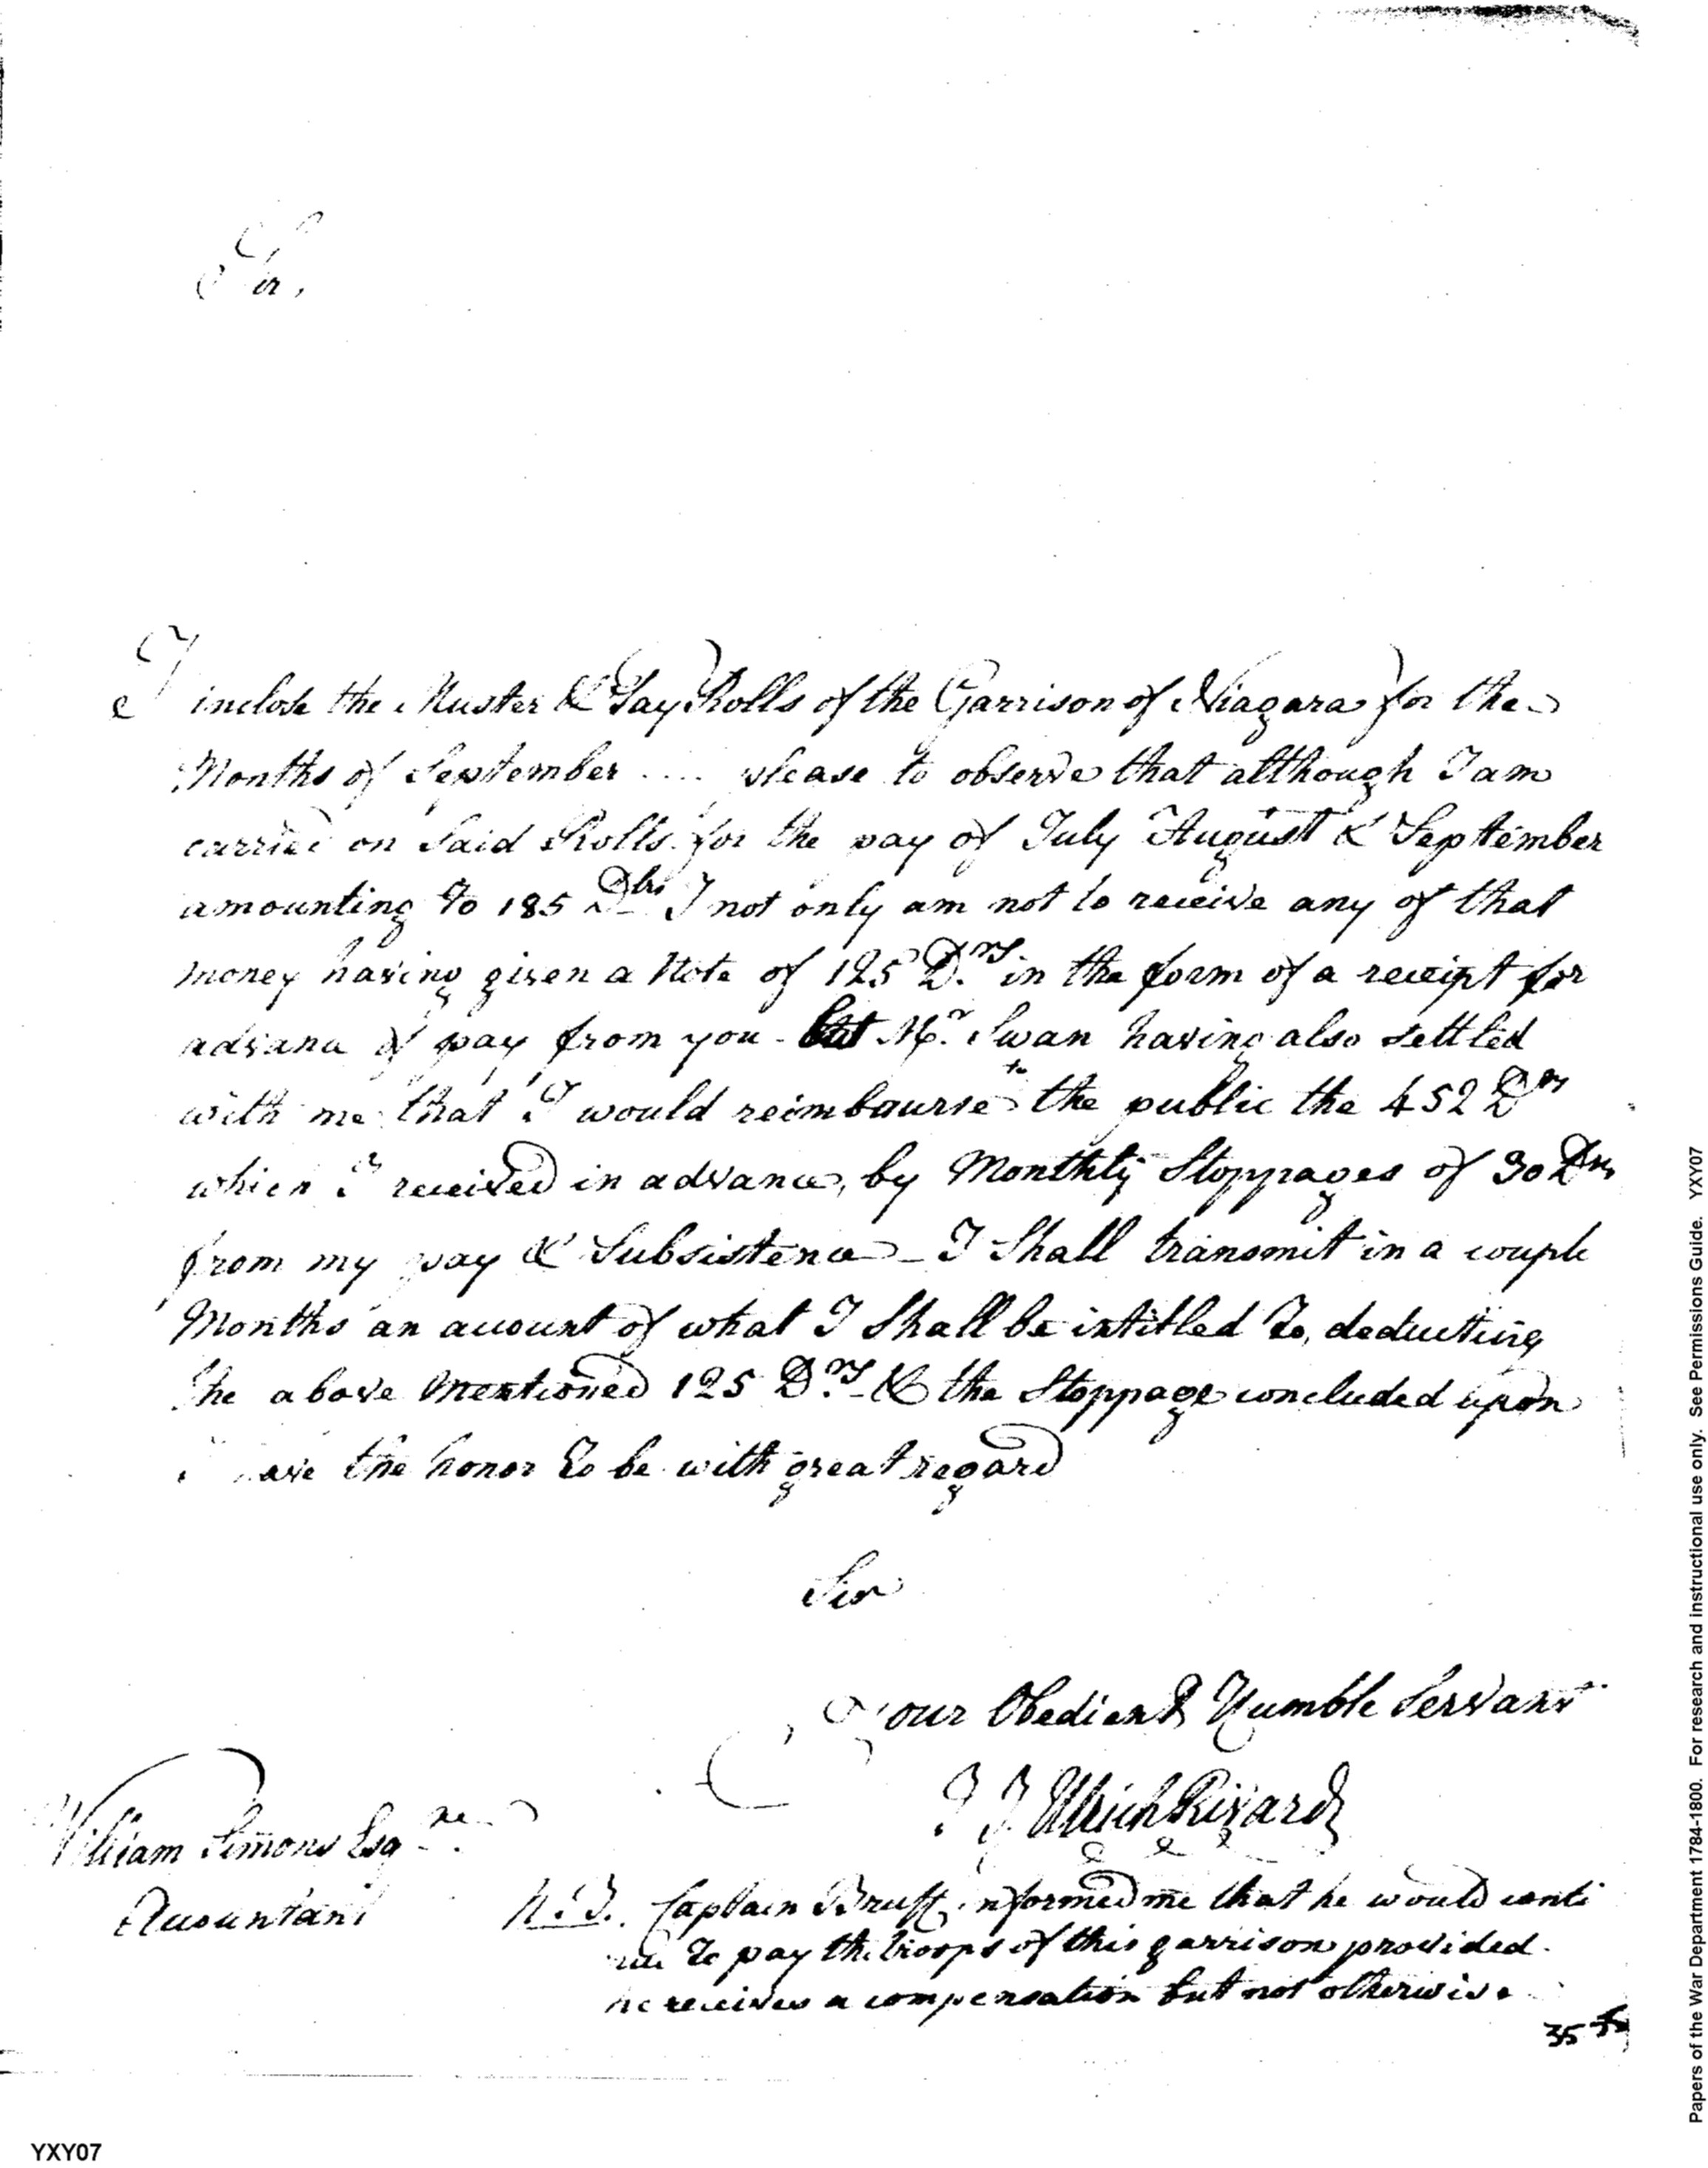 Sir,
I inclose the Muster & Pay Rolls of the Garrison of Niagara for the
Months of September .... please to observe that although I am
carried on Said Rolls for the pay of July August & September
amounting to 185 Dlrs I not only am not to receive any of that
money having given a Note of 125 D.rs in the form of a receipt for
advance of pay from you - but Mr. Swan having also settled
with me that I would reimbourse to the public the 452 Drs
which I received in advance, by Monthly Stoppages of 30 Drs
from my pay & Subsistence - I Shall transmit in a couple
Months an account of what I Shall be intitled to, deducting
the above Mentioned 125 D.rs & the Stoppage concluded upon
I have the honor to be with great regard
Sir
Your Obedient Humble Servant
J J Ulrich Rivardi
William Simons Esqre.
Accountant
N.B. Captain Bruff informed me that he would conti
nue to pay the troops of this garrison provided
he receives a compensation but not otherwise
35
Papers of the War Department 1784-1800. For research and instructional use only. See Permissions Guide. YXY07
YXY07